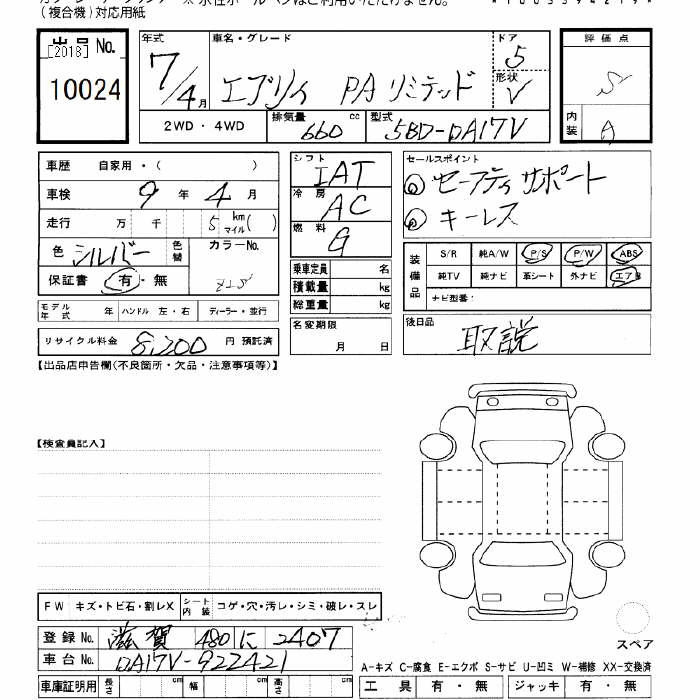 (複合機)対応用紙
出品 No.
[2018]
10024
年式 7/4月
車名・グレード エブリイ PA リミテッド
ドア 5
形状 V
2WD・4WD
排気量 660 cc
型式 5BD-DA17V
評価点 S
内装 A
車歴 自家用・( )
車検 9年 4月
走行 万 千 5 km マイル( )
色 シルバー 色替 カラーNo. Z2S
保証書 有・無
モデル年式 年 ハンドル 左・右 ディーラー・並行
リサイクル料金 8,200 円 預託済
シフト IAT
冷房 AC
燃料 G
乗車定員 名
積載量 kg
総重量 kg
名変期限
月 日
セールスポイント
◎ セーフティサポート
◎ キーレス
装備品
S/R 純A/W P/S P/W ABS
純TV 純ナビ 革シート 外ナビ エアB
ナビ型番:
後日品
取説
【出品店申告欄(不良箇所・欠品・注意事項等)】
【検査員記入】
FW キズ・トビ石・割レX シート内装 コゲ・穴・汚レ・シミ・破レ・スレ
登録 No. 滋賀 480 に 2407
車台 No. DA17V-922421
車庫証明用 長さ cm 幅 cm 高さ cm
スペア
A-キズ C-腐食 E-エクボ S-サビ U-凹ミ W-補修 XX-交換済
工具 有・無 ジャッキ 有・無